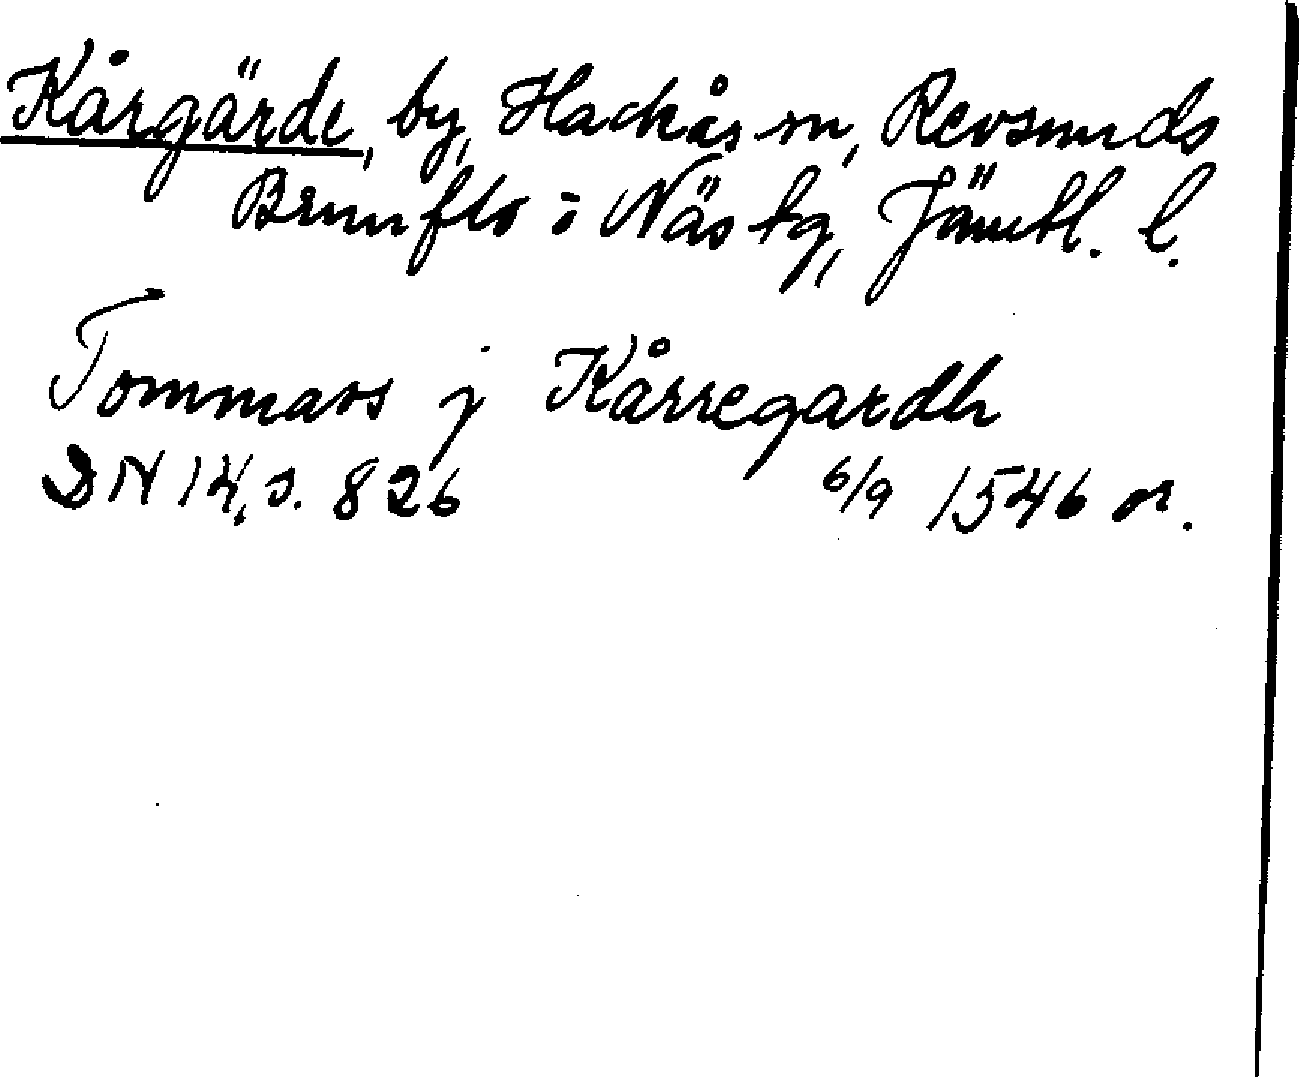 Kårgärde, by, Hackås sn, Revsunds
Brunflo o Näs tg, Jämtl. l.
Tommars j Kårregardh
DN 14, s. 826 6/9 1546 or.